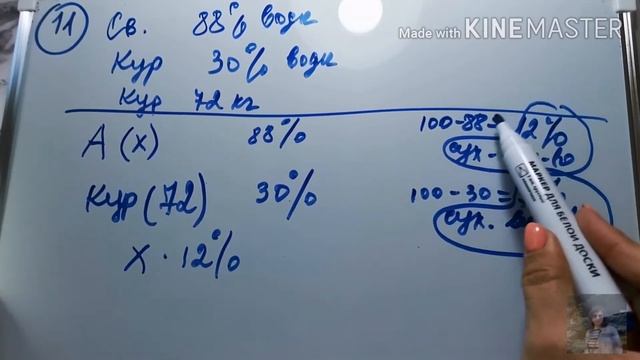 Made with KINEMASTER
11 Св. 88% воды
Кур 30% воды
Кур 72 кг
А (х) 88% 100-88= 12%
сух
Кур (72) 30% 100-30=
сух.
х · 12%
МАРКЕР ДЛЯ БЕЛОЙ ДОСКИ